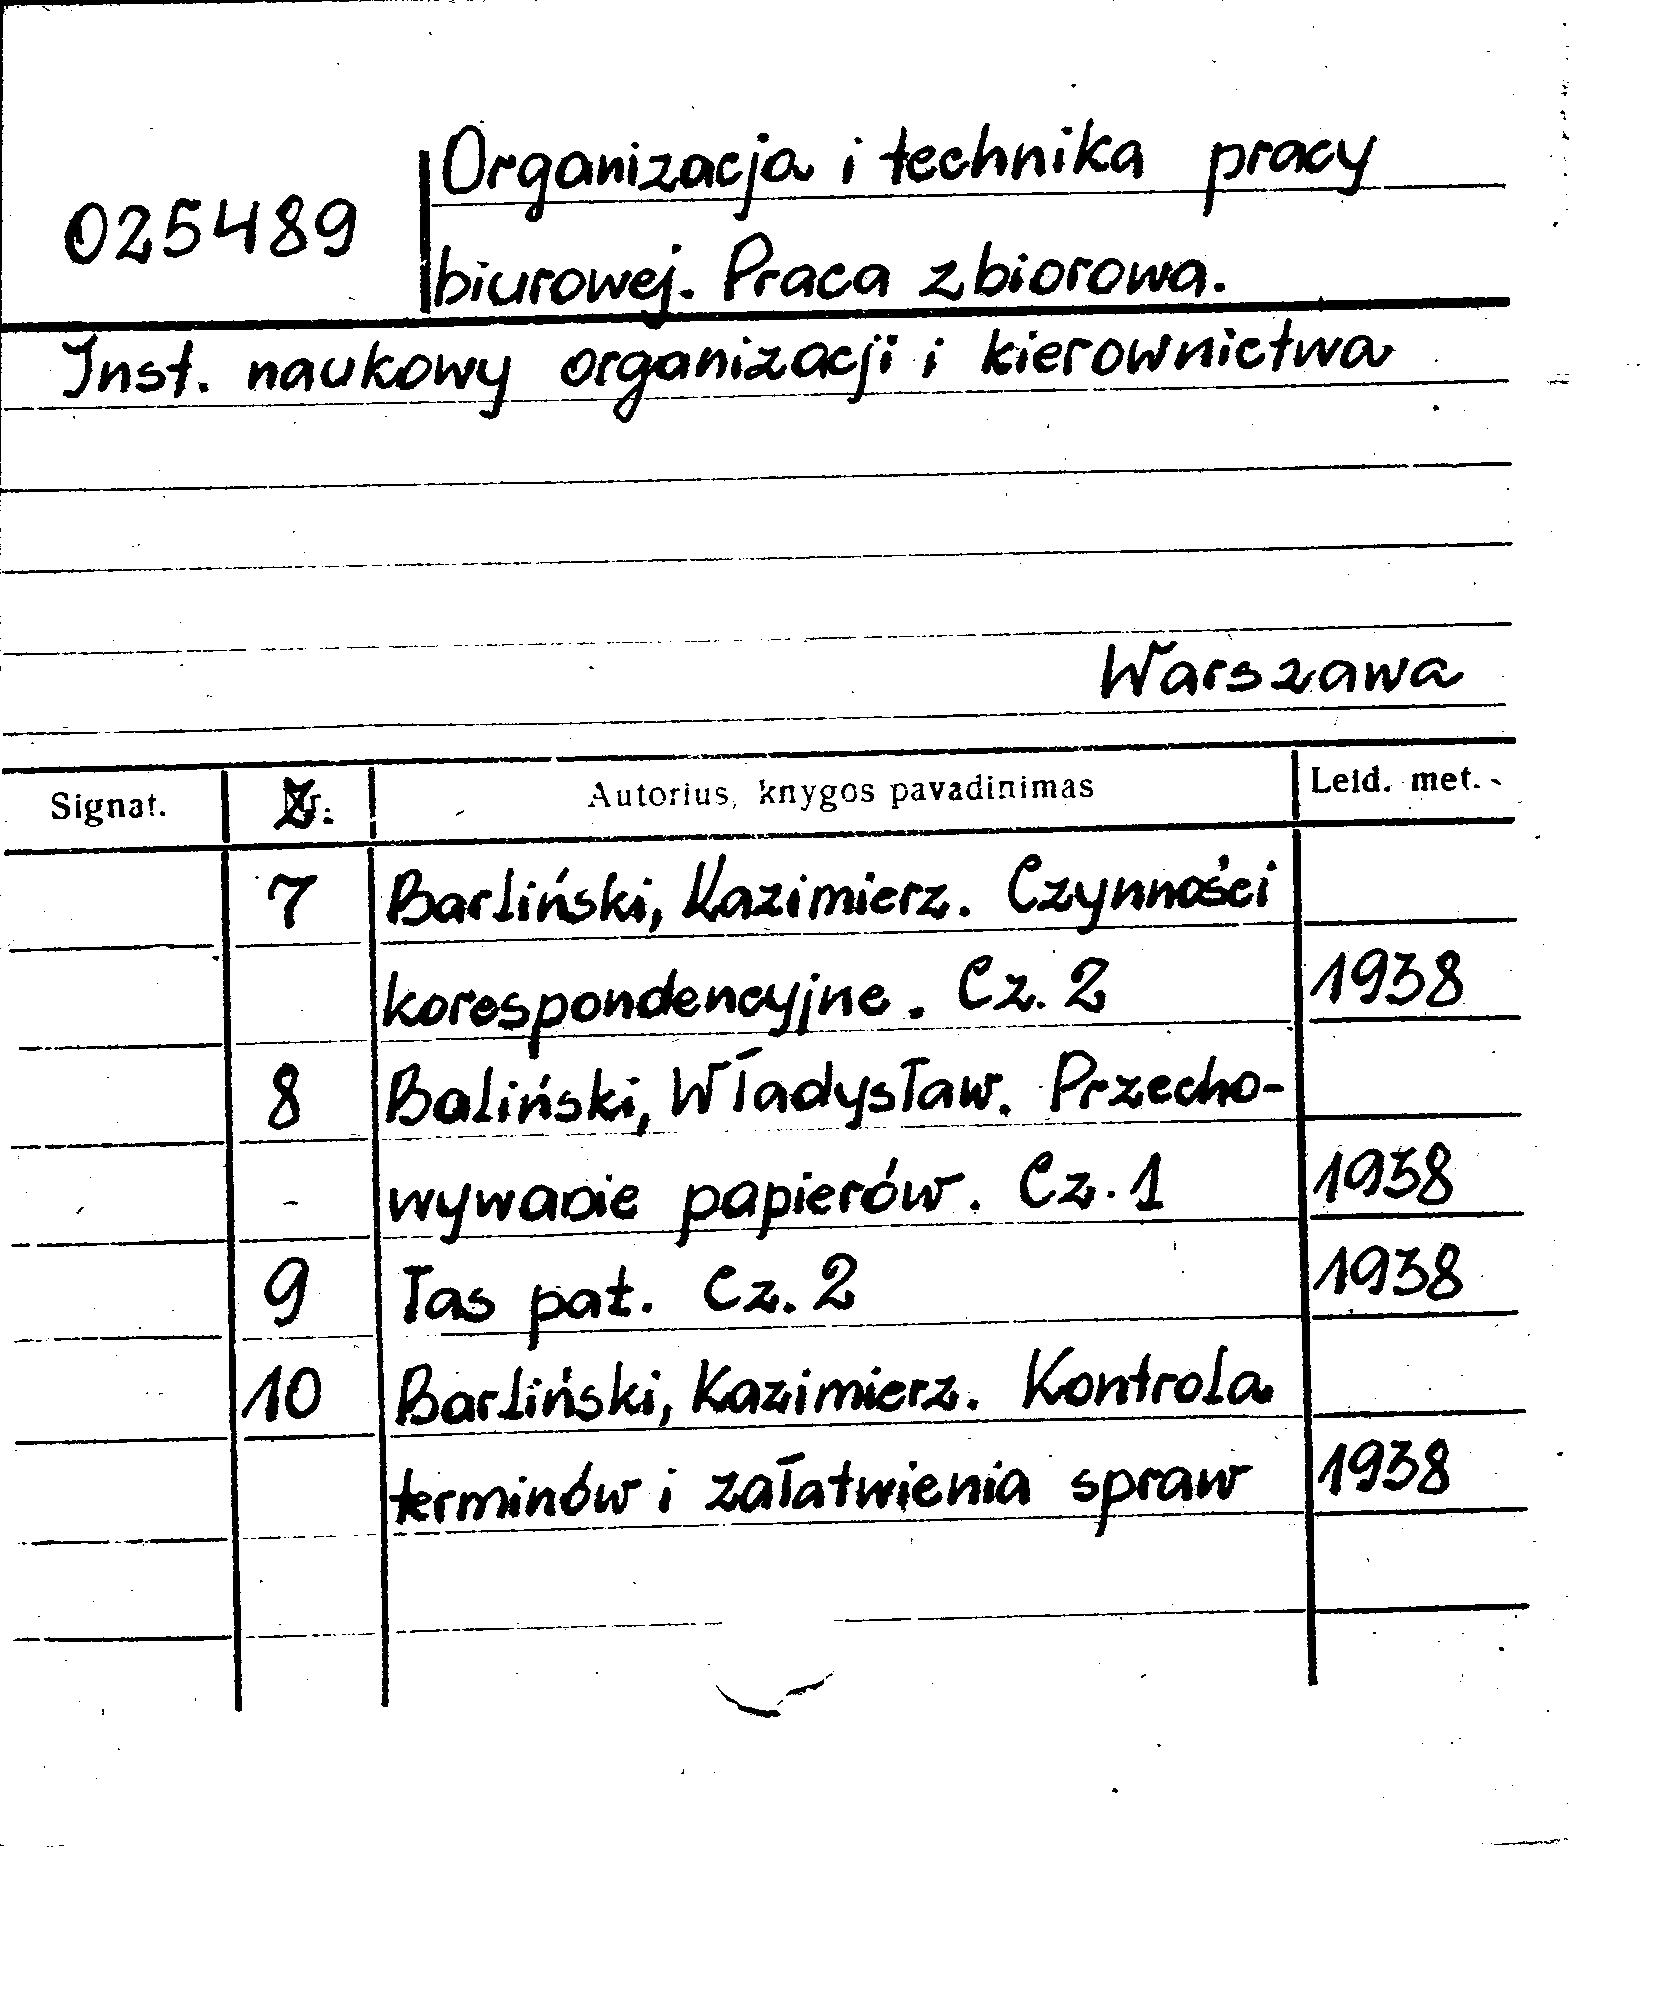 Organizacja i technika pracy
025489
biurowej. Praca zbiorowa.
Inst. naukowy organizacji i kierownictwa
Warszawa
Signat. Autorius, knygos pavadinimas Leid. met.
7 Barliński, Kazimierz. Czynności
korespondencyjne. Cz. 2 1938
8 Baliński, Władysław. Przecho-
wywanie papierów. Cz. 1 1938
9 Tas pat. Cz. 2 1938
10 Barliński, Kazimierz. Kontrola
terminów i załatwienia spraw 1938